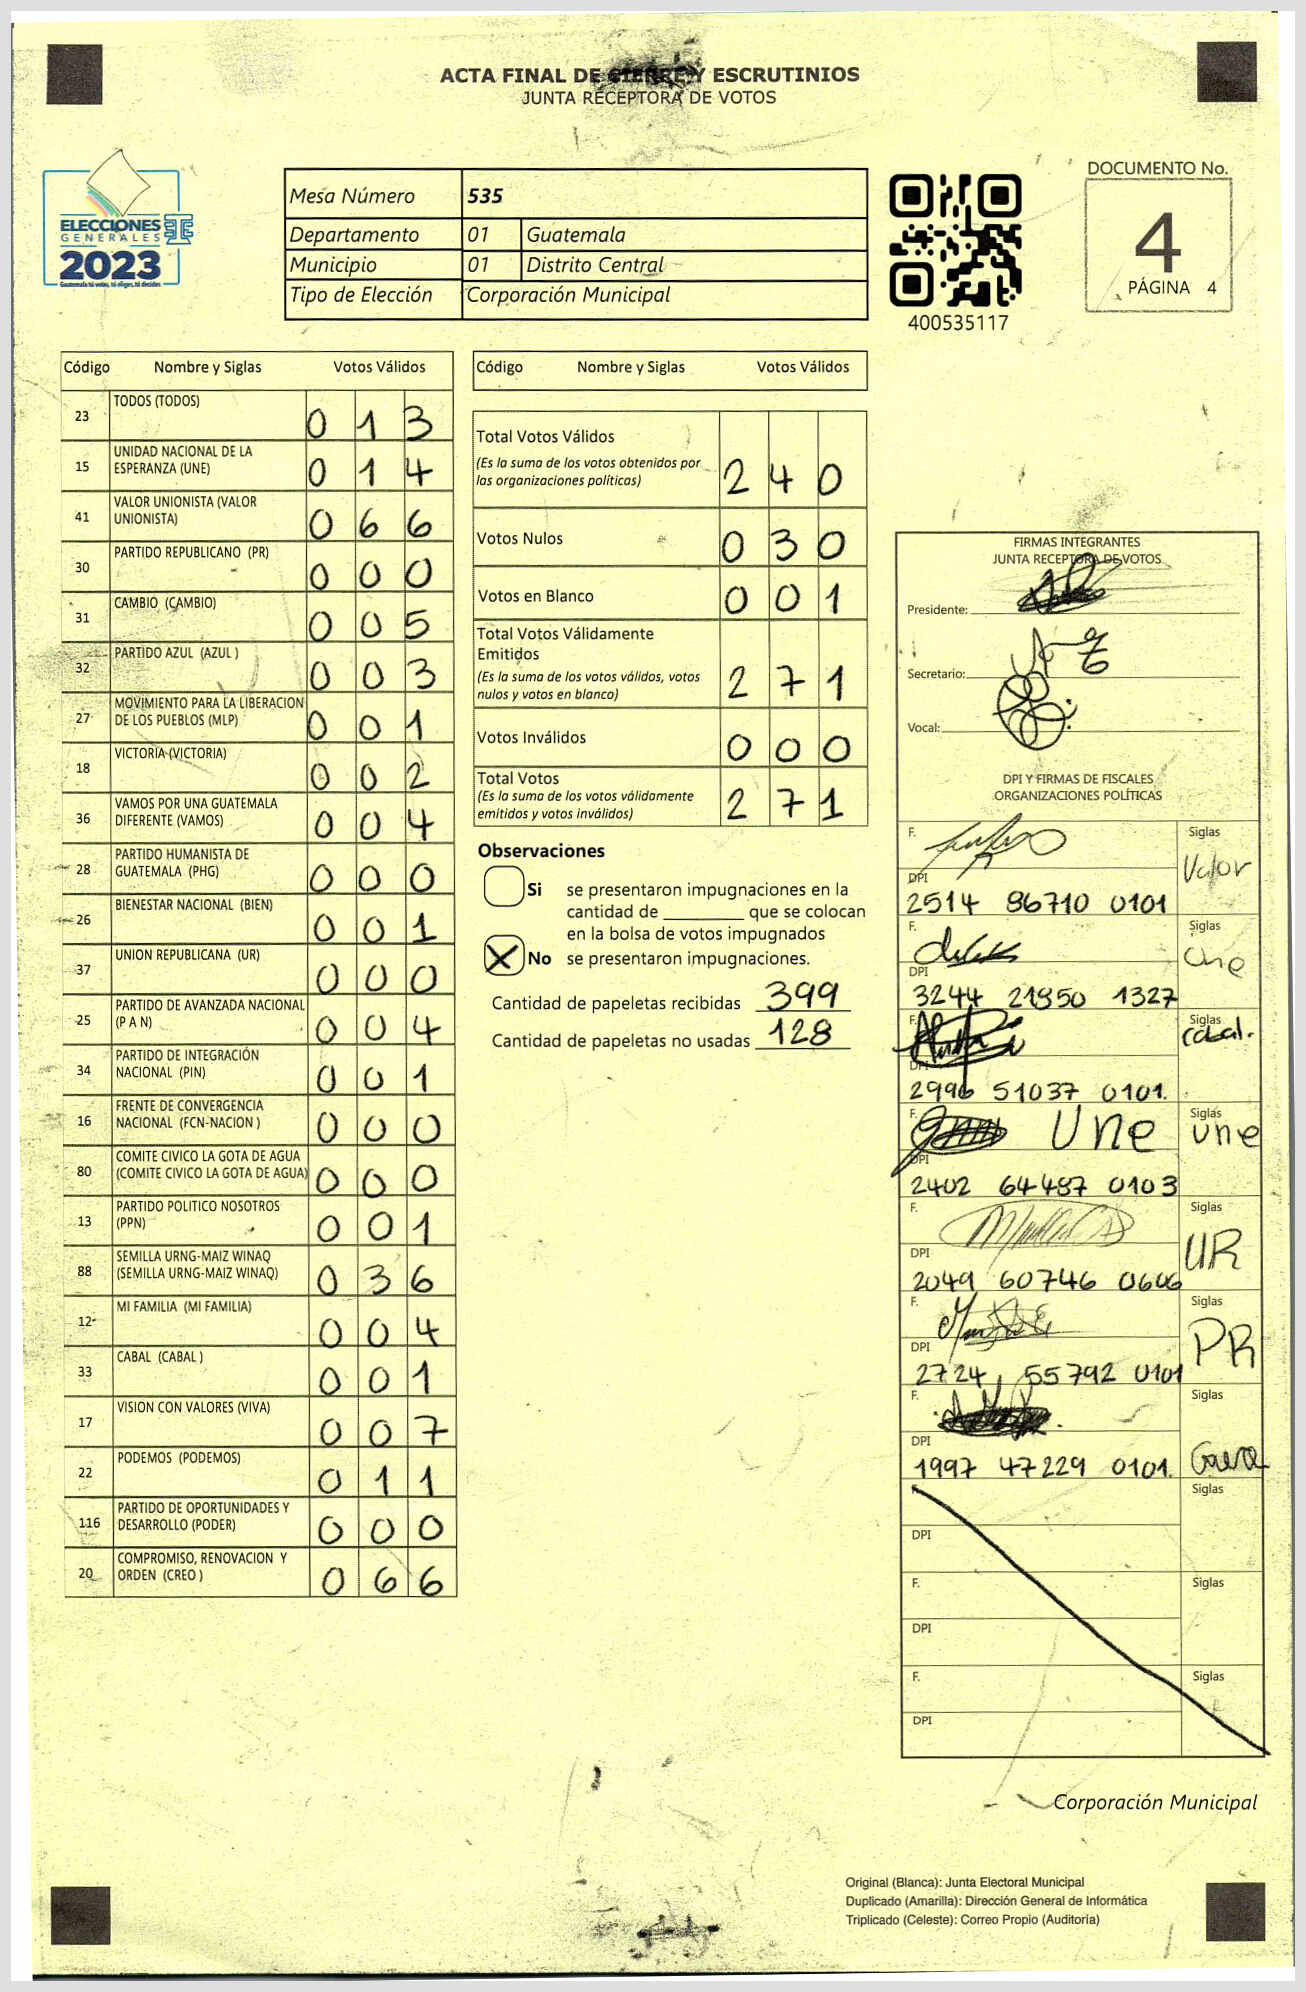 ACTA FINAL DE CIERRE Y ESCRUTINIOS
JUNTA RECEPTORA DE VOTOS
ELECCIONES
GENERALES
2023
Guatemala tú votas, tú eliges, tú decides
Mesa Número 535
Departamento 01 Guatemala
Municipio 01 Distrito Central
Tipo de Elección Corporación Municipal
400535117
DOCUMENTO No.
4
PÁGINA 4
Código Nombre y Siglas Votos Válidos
23 TODOS (TODOS) 0 1 3
15 UNIDAD NACIONAL DE LA
ESPERANZA (UNE) 0 1 4
41 VALOR UNIONISTA (VALOR
UNIONISTA) 0 6 6
30 PARTIDO REPUBLICANO (PR) 0 0 0
31 CAMBIO (CAMBIO) 0 0 5
32 PARTIDO AZUL (AZUL ) 0 0 3
27 MOVIMIENTO PARA LA LIBERACION
DE LOS PUEBLOS (MLP) 0 0 1
18 VICTORIA (VICTORIA) 0 0 2
36 VAMOS POR UNA GUATEMALA
DIFERENTE (VAMOS) 0 0 4
28 PARTIDO HUMANISTA DE
GUATEMALA (PHG) 0 0 0
26 BIENESTAR NACIONAL (BIEN) 0 0 1
37 UNION REPUBLICANA (UR) 0 0 0
25 PARTIDO DE AVANZADA NACIONAL
(P A N) 0 0 4
34 PARTIDO DE INTEGRACIÓN
NACIONAL (PIN) 0 0 1
16 FRENTE DE CONVERGENCIA
NACIONAL (FCN-NACION ) 0 0 0
80 COMITE CIVICO LA GOTA DE AGUA
(COMITE CIVICO LA GOTA DE AGUA) 0 0 0
13 PARTIDO POLITICO NOSOTROS
(PPN) 0 0 1
88 SEMILLA URNG-MAIZ WINAQ
(SEMILLA URNG-MAIZ WINAQ) 0 3 6
12 MI FAMILIA (MI FAMILIA) 0 0 4
33 CABAL (CABAL ) 0 0 1
17 VISION CON VALORES (VIVA) 0 0 7
22 PODEMOS (PODEMOS) 0 1 1
116 PARTIDO DE OPORTUNIDADES Y
DESARROLLO (PODER) 0 0 0
20 COMPROMISO, RENOVACION Y
ORDEN (CREO ) 0 6 6
Código Nombre y Siglas Votos Válidos
Total Votos Válidos
(Es la suma de los votos obtenidos por
las organizaciones políticas) 2 4 0
Votos Nulos 0 3 0
Votos en Blanco 0 0 1
Total Votos Válidamente
Emitidos
(Es la suma de los votos válidos, votos
nulos y votos en blanco) 2 7 1
Votos Inválidos 0 0 0
Total Votos
(Es la suma de los votos válidamente
emitidos y votos inválidos) 2 7 1
Observaciones
Si se presentaron impugnaciones en la
cantidad de ________ que se colocan
en la bolsa de votos impugnados
X No se presentaron impugnaciones.
Cantidad de papeletas recibidas 399
Cantidad de papeletas no usadas 128
FIRMAS INTEGRANTES
JUNTA RECEPTORA DE VOTOS
Presidente:
Secretario:
Vocal:
DPI Y FIRMAS DE FISCALES
ORGANIZACIONES POLÍTICAS
F. Siglas
Valor
DPI
2514 86710 0101
F. Siglas
Une
DPI
3244 21950 1327
F. Siglas
Cabal.
DPI
2996 51037 0101.
F. Une Siglas
Une
DPI
2402 64487 0103
F. Siglas
UR
DPI
2049 60746 0606
F. Siglas
PR
DPI
2724 55792 0101
F. Siglas
DPI
1997 47229 0101.
F. Siglas
DPI
F. Siglas
DPI
F. Siglas
DPI
Corporación Municipal
Original (Blanca): Junta Electoral Municipal
Duplicado (Amarilla): Dirección General de Informática
Triplicado (Celeste): Correo Propio (Auditoria)